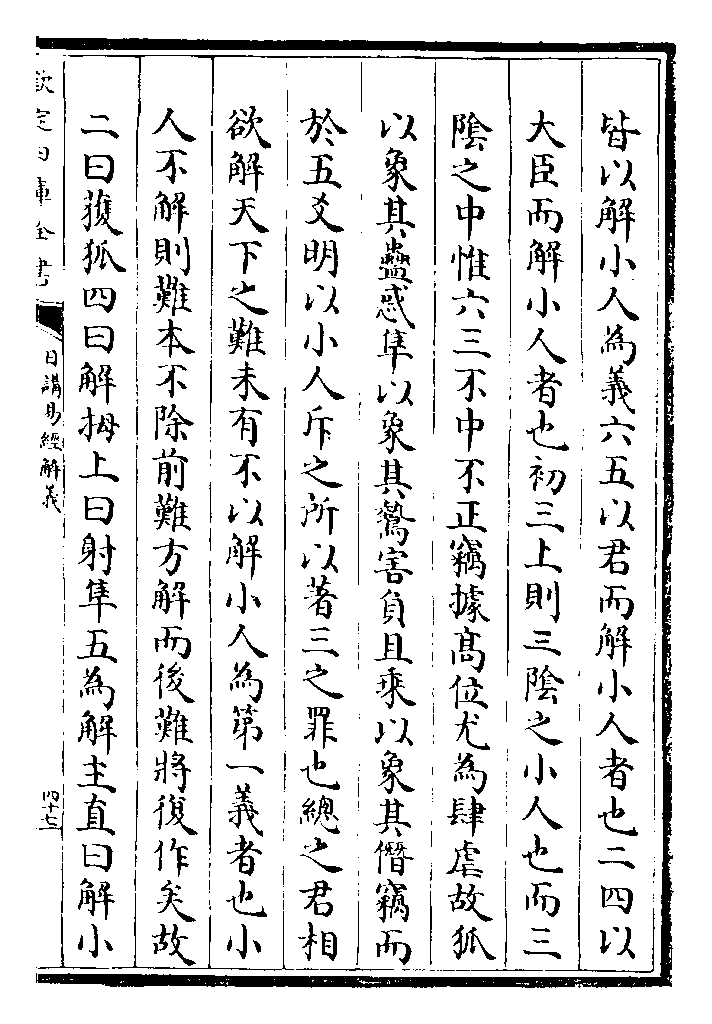 皆以解小人為義六五以君而解小人者也二四以
大臣而解小人者也初三上則三陰之小人也而三
陰之中惟六三不中不正竊據髙位尤為肆虐故狐
以象其蠱惑隼以象其鷙害負且乘以象其僭竊而
於五爻明以小人斥之所以著三之罪也總之君相
欲解天下之難未有不以解小人為第一義者也小
人不解則難本不除前難方解而後難將復作矣故
二曰獲狐四曰解拇上曰射隼五為解主直曰解小
欽定四庫全書
日講易經解義
四十七